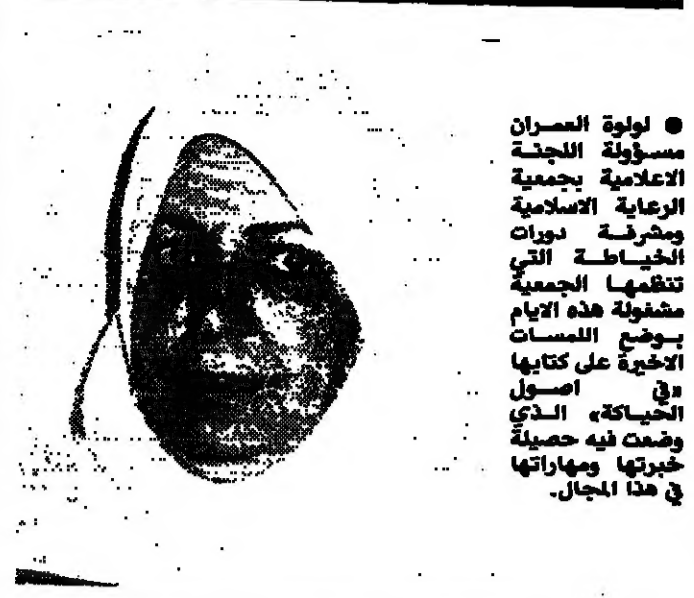 ● لولوة العمران
مسؤولة اللجنة
الاعلامية بجمعية
الرعاية الاسلامية
ومشرفة دورات
الخياطة التي
تنظمها الجمعية
مشغولة هذه الايام
بوضع اللمسات
الاخيرة على كتابها
«في اصول
الحياكة» الذي
وضعت فيه حصيلة
خبرتها ومهاراتها
في هذا المجال.